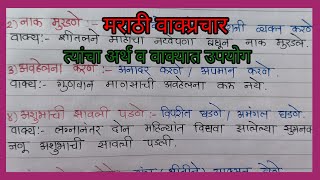 2) नाक मुरडणे :-
मराठी वाक्प्रचार
व्यक्त करणे
वाक्य:- शीतलने माठाचा
बघून नाक मुरडले.
त्यांचा अर्थ व वाक्यात उपयोग
3) अवहेलना करणे :- अनादर करणे / अपमान करणे
वाक्य:- गुणवान माणसाची अवहेलना करू नये.
4) अशुभाची सावली पडणे :- विपरीत घडणे / अमंगल घडणे.
वाक्य:- लग्नानंतर दोन महिन्यात विधवा झालेल्या सुमनवर
जणू अशुभाची सावली पडली.